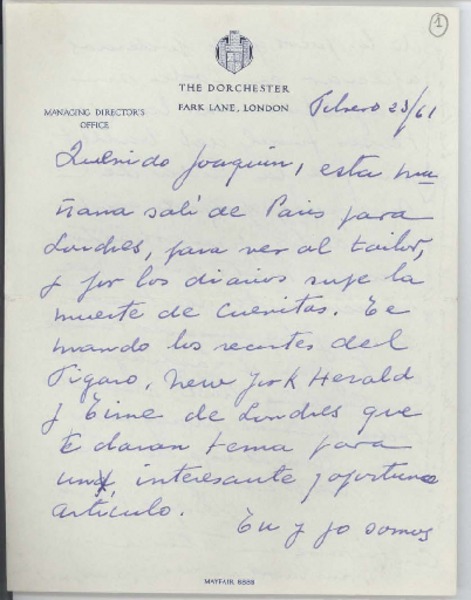 1
THE DORCHESTER
PARK LANE, LONDON
MANAGING DIRECTOR'S
OFFICE
Febrero 23/61
Querido Joaquin, esta ma
ñana salí de Paris para
Londres, para ver al tailor,
y por los diarios supe la
muerte de Cuevitas. Te
mando los recortes del
Figaro, New York Herald
y Time de Londres que
te daran tema para
un interesante y oportuno
artículo.
Tu y yo somos
MAYFAIR 8888